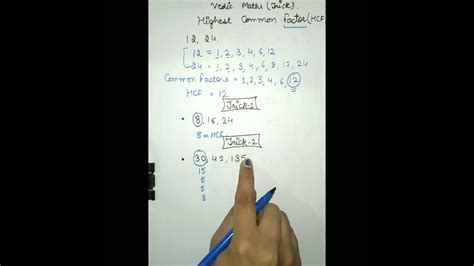 Vedic Maths (Trick).
Highest Common factor (HCF
12, 24.
12 = 1, 2, 3, 4, 6, 12
24 = 1, 2, 3, 4, 6, 8, 12, 24
Common factors = 1, 2, 3, 4, 6, 12
HCF = 12.
Trick-1
8, 16, 24
8 = HCF
Trick-2
30, 42, 135
15
6
5
3